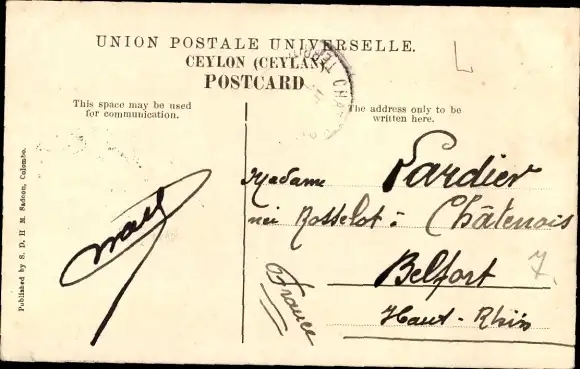 UNION POSTALE UNIVERSELLE.
CEYLON (CEYLAN)
POSTCARD
This space may be used
for communication.
The address only to be
written here.
Madame Pardier
née Rosselot: Châtenois
Belfort 7.
Haut-Rhin
France
L
Published by S. D. H. M. Sadoon, Colombo.